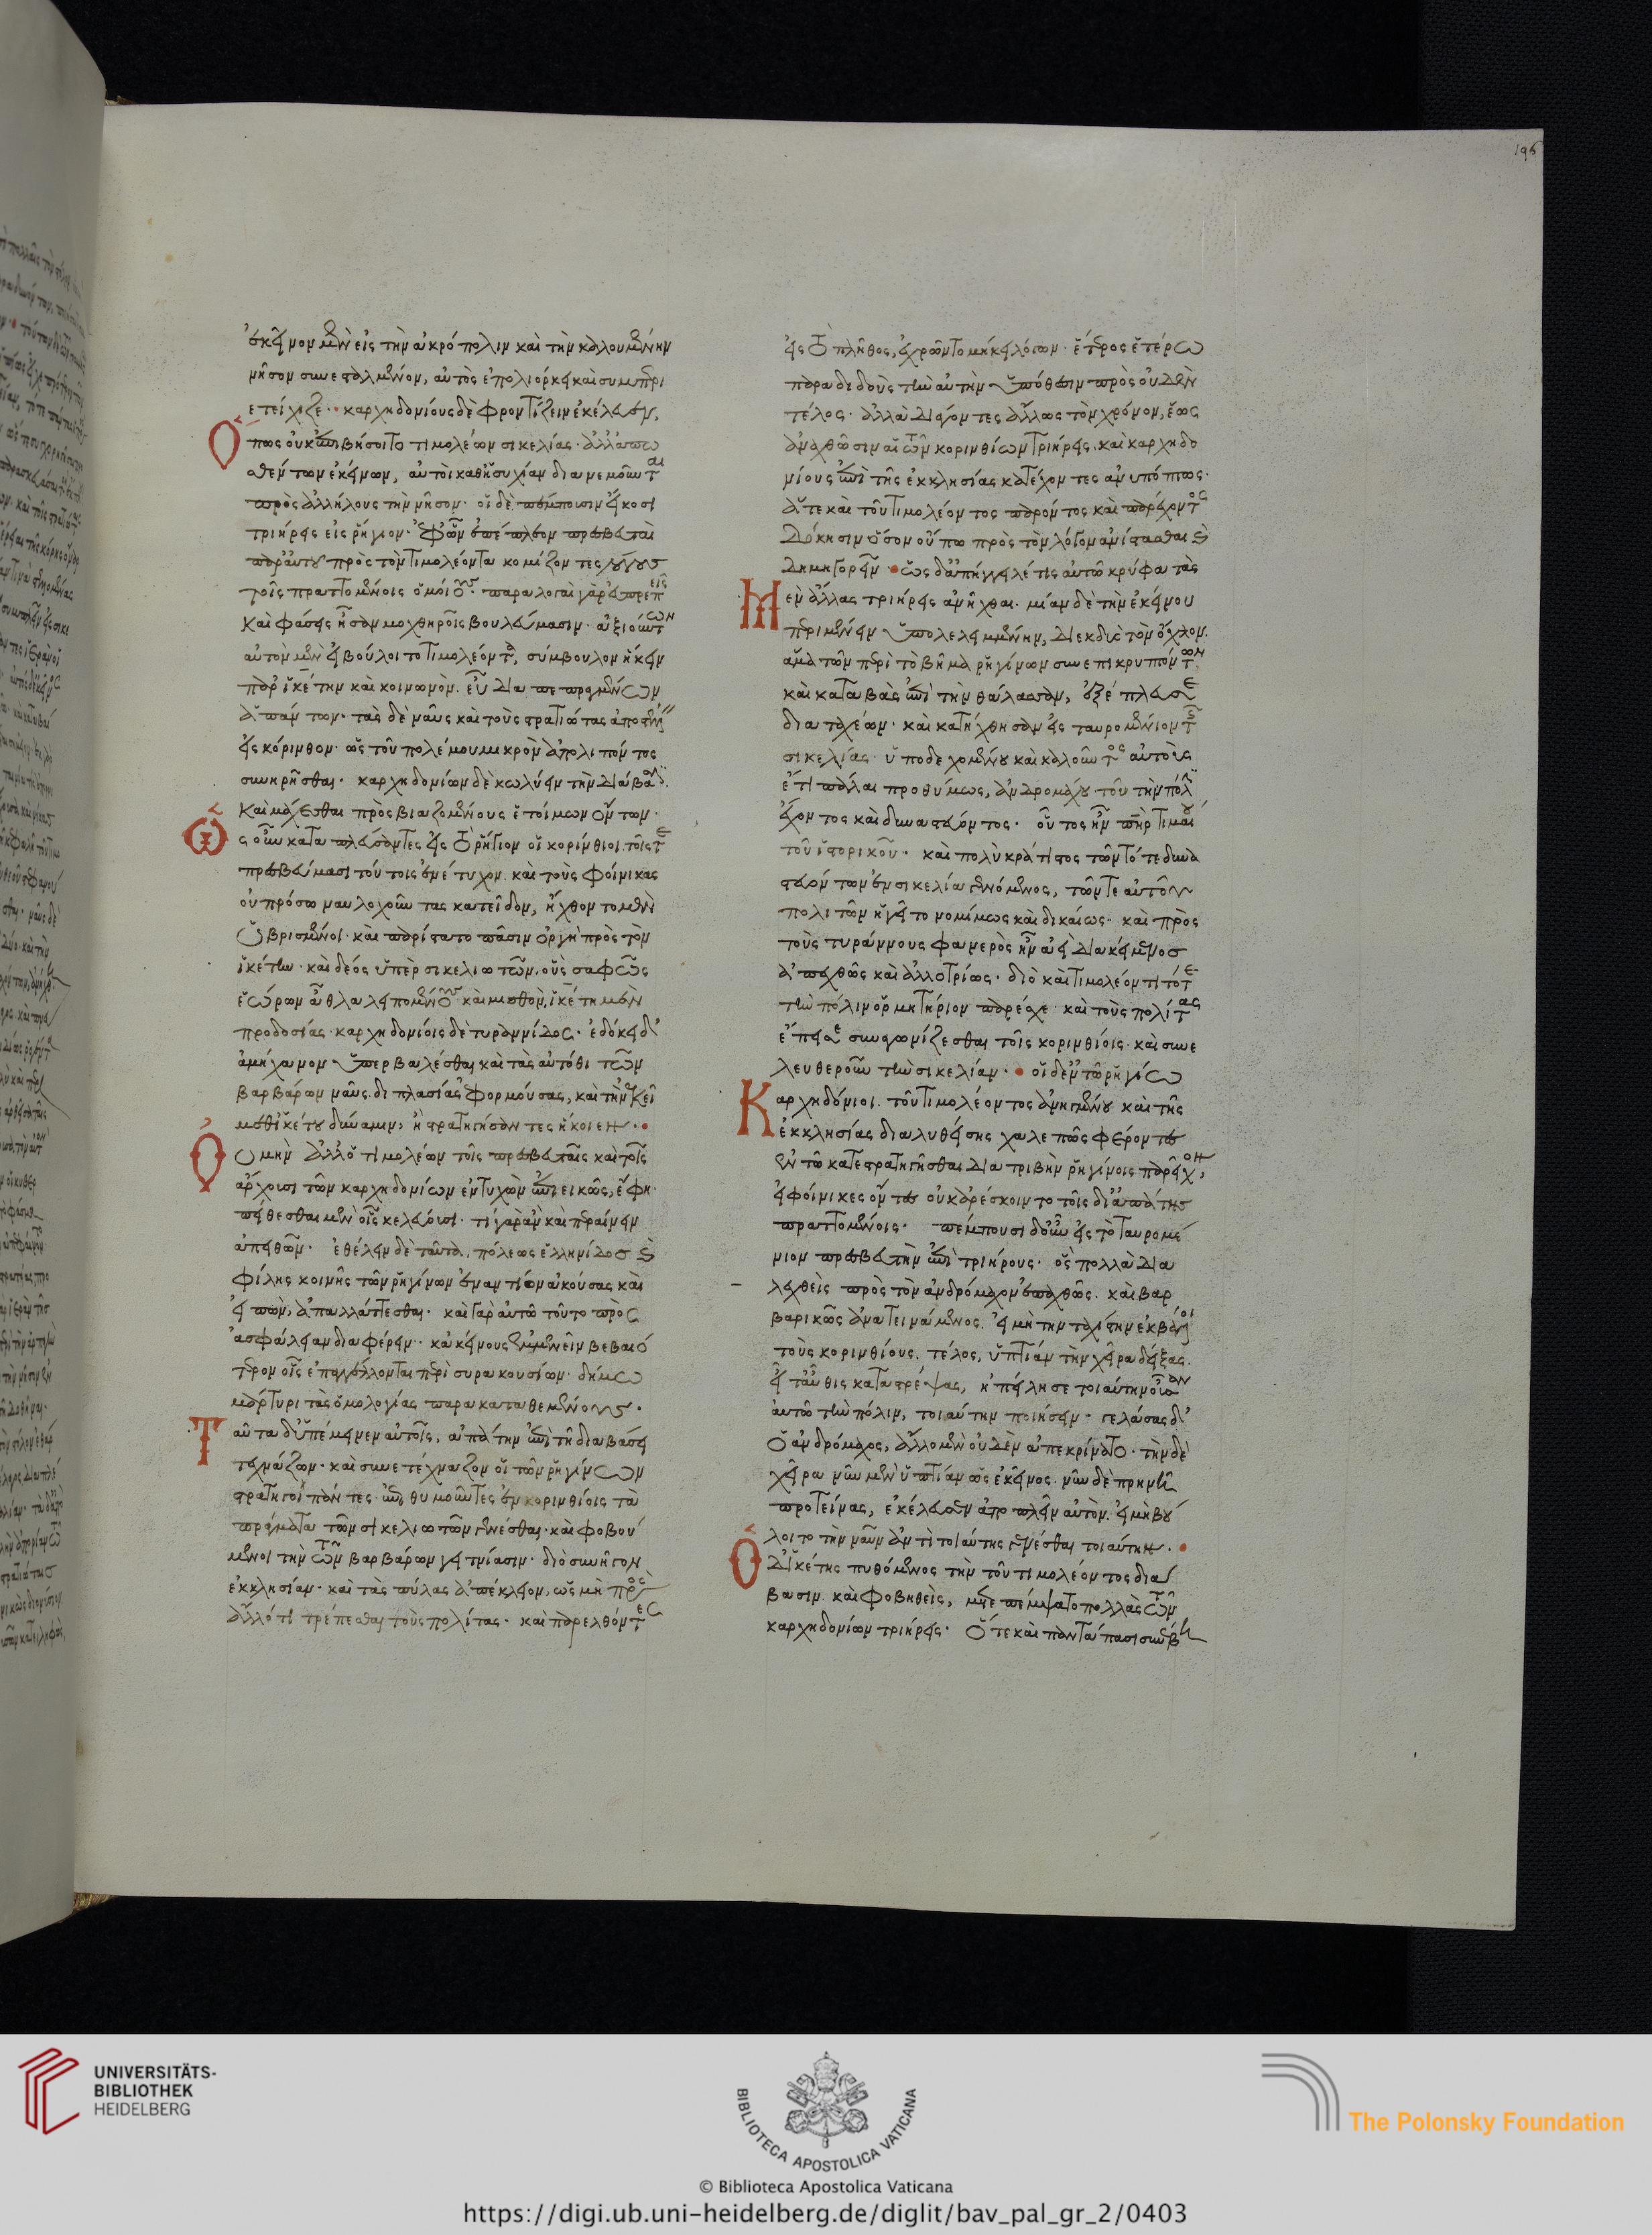 ἐκεῖνον μὲν εἰς τὴν ἀκρόπολιν καὶ τὴν καλουμένην
νῆσον συνεσταλμένον, αὐτὸς ἐπολιόρκει καὶ συμπερι
ετείχιζε· καρχηδονίους δὲ φροντίζειν ἐκέλευεν,
Ὅπως οὐκ ἐπιβήσοιτο τιμολέων σικελίας· ἀλλ' ἀπωσ
θέντων ἐκείνων, αὐτοὶ καθ' ἡσυχίαν διανεμοῦνται
πρὸς ἀλλήλους τὴν νῆσον· οἱ δὲ πέμπουσιν εἴκοσι
τριήρεις εἰς ῥήγιον· ἐφ' ὧν ἐπέπλεον πρεσβευταὶ
παρ' αὐτοῦ πρὸς τὸν τιμολέοντα κομίζοντες λόγους
τοῖς πραττομένοις ὁμοίους· παραλογαὶ γὰρ εὐπρεπεῖς
Καὶ φάσεις ἦσαν μοχθηροῖς βουλεύμασιν· ἀξιούντων
αὐτὸν μὲν εἰ βούλοιτο τιμολέοντα, σύμβουλον ἥκειν
παρ' ἱκέτην καὶ κοινωνὸν. εὖ διαπεπραγμένων
ἁπάντων· τὰς δὲ ναῦς καὶ τοὺς στρατιώτας ἀποστέλλειν
εἰς κόρινθον· ὡς τοῦ πολέμου μικρὸν ἀπολιπόντος
συνῃρῆσθαι· καρχηδονίων δὲ κωλύειν τὴν διάβασιν.
Καὶ μάχεσθαι πρὸς βιαζομένους ἑτοίμων ὄντων·
Ὡς οὖν καταπλεύσαντες εἰς τὸ ῥήγιον οἱ κορίνθιοι. τοῖς τε
πρεσβεύμασι τούτοις ἐνέτυχον. καὶ τοὺς φοίνικας
οὐ πρόσω ναυλοχοῦντας κατεῖδον, ἤχθοντο μὲν
ὑβρισμένοι· καὶ παρίστατο πᾶσιν ὀργὴ πρὸς τὸν
ἱκέτην· καὶ δέος ὑπὲρ σικελιωτῶν. οὓς σαφῶς
ἑώρων ἆθλα λειπομένους καὶ μισθὸν, ἱκέτη μὲν
προδοσίας· καρχηδονίοις δὲ τυραννίδος· ἐδόκει δ'
ἀμήχανον ὑπερβαλέσθαι καὶ τὰς αὐτόθι τῶν
βαρβάρων ναῦς. διπλασίας ἐφορμούσας, καὶ τὴν ἐκεῖ
μεθ' ἱκέτου δύναμιν, ᾗ στρατηγήσαντες ἥκοιεν·
Ὀυ μὴν ἀλλ' ὁ τιμολέων τοῖς πρεσβευταῖς καὶ τοῖς
ἄρχουσι τῶν καρχηδονίων ἐντυχὼν ἐπιεικῶς, ἔφη·
πείθεσθαι μὲν οἷς κελεύουσι. τί γὰρ ἂν καὶ περαίνειν
ἀπειθῶν· ἐθέλειν δὲ ταῦτα, πόλεως ἑλληνίδος καὶ
φίλης κοινῆς τῶν ῥηγίνων ἐναντίον ἀκούσας καὶ
εἰπὼν, ἀπαλλάττεσθαι· καὶ γὰρ αὐτῷ τοῦτο πρὸς
ἀσφάλειαν διαφέρειν. κἀκείνους ἐμμενεῖν βεβαιό
τερον οἷς ἐπαγγέλλονται περὶ συρακουσίων· δήμῳ
μάρτυρι τὰς ὁμολογίας παρακαταθεμένους.
Ταῦτα δ' ὑπέμεινεν αὐτοῖς, ἀπάτην ἐπὶ τῇ διαβάσει
τεχνάζων· καὶ συνετέχναζον οἱ τῶν ῥηγίνων
στρατηγοὶ πάντες. ἐπιθυμοῦντες ἐν κορινθίοις τὰ
πράγματα τῶν σικελιωτῶν γενέσθαι· καὶ φοβού
μενοι τὴν τῶν βαρβάρων γειτνίασιν· διὸ συνῆγον
ἐκκλησίαν· καὶ τὰς πύλας ἀπέκλειον, ὡς μὴ πρὸς
ἄλλό τι τρέπεσθαι τοὺς πολίτας· καὶ παρελθόντες
εἰς τὸ πλῆθος, ἐχρῶντο μήκει λόγων· ἕτερος ἑτέρῳ
παραδιδοὺς τὴν αὐτὴν ὑπόθεσιν πρὸς οὐδὲν
τέλος· ἀλλὰ διάγοντες ἄλλως τὸν χρόνον, ἕως
ἀναχθῶσιν αἱ τῶν κορινθίων τριήρεις. καὶ καρχηδο
νίους ἐπὶ τῆς ἐκκλησίας κατέχοντες ἀνυπόπτως·
ἅτε καὶ τοῦ τιμολέοντος παρόντος καὶ παρέχοντος
Δόκησιν ὅσον οὔπω πρὸς τὸν λόγον ἀνίστασθαι καὶ
δημηγορεῖν· ὡς δ' ἀπήγγειλέ τις αὐτῷ κρύφα τὰς
Μὲν ἄλλας τριήρεις ἀνῆχθαι. μίαν δὲ τὴν ἐκείνου
περιμένειν ὑπολελειμμένην, διεκδὺς τὸν ὄχλον.
ἅμα τῶν περὶ τὸ βῆμα ῥηγίνων συνεπικρυπτόντων
καὶ καταβὰς ἐπὶ τὴν θάλασσαν, ἐξέπλευσε
διὰ ταχέων· καὶ κατήχθησαν εἰς ταυρομένιον τῆς
σικελίας· ὑποδεχομένου καὶ καλοῦντος αὐτοὺς
ἔτι πάλαι προθύμως, ἀνδρομάχου τοῦ τὴν πόλιν
ἔχοντος καὶ δυναστεύοντος· οὗτος ἦν πατὴρ τιμαίου
τοῦ ἱστορικοῦ· καὶ πολὺ κράτιστος τῶν τότε δυνα
στευόντων ἐν σικελίᾳ γενόμενος, τῶν τε αὑτοῦ
πολιτῶν ἡγεῖτο νομίμως καὶ δικαίως· καὶ πρὸς
τοὺς τυράννους φανερὸς ἦν ἀεὶ διακείμενος
ἀπεχθῶς καὶ ἀλλοτρίως· διὸ καὶ τιμολέοντι τότε
τὴν πόλιν ὁρμητήριον παρέσχε· καὶ τοὺς πολίτας
ἔπεισε συναγωνίζεσθαι τοῖς κορινθίοις· καὶ συνε
λευθεροῦν τὴν σικελίαν· οἱ δ' ἐν τῷ ῥηγίῳ
Καρχηδόνιοι. τοῦ τιμολέοντος ἀνηγμένου καὶ τῆς
ἐκκλησίας διαλυθείσης χαλεπῶς φέροντες
ἐν τῷ κατεστρατηγῆσθαι διατριβὴν ῥηγίνοις παρεῖχον,
εἰ φοίνικες ὄντες οὐκ ἀρέσκοιντο τοῖς δι' ἀπάτης
πραττομένοις· πέμπουσι δ' οὖν εἰς τὸ ταυρομέ
νιον πρεσβευτὴν ἐπὶ τριήρους· ὃς πολλὰ δια
λεχθεὶς πρὸς τὸν ἀνδρόμαχον ἐπαχθῶς. καὶ βαρ
βαρικῶς ἀνατεινάμενος. εἰ μὴ τὴν ταχίστην ἐκβάλοι
τοὺς κορινθίους. τέλος, ὑπτίαν τὴν χεῖρα δείξας.
εἶτ' αὖθις καταστρέψας, ἠπείλησε τοιαύτην οὖσαν
αὐτῷ τὴν πόλιν, τοιαύτην ποιήσειν· γελάσας δ'
ὁ ἀνδρόμαχος, ἄλλο μὲν οὐδὲν ἀπεκρίνατο· τὴν δὲ
χεῖρα νῦν μὲν ὑπτίαν ὡς ἐκεῖνος. νῦν δὲ πρηνῆ
προτείνας, ἐκέλευσεν ἀποπλεῖν αὐτὸν. εἰ μὴ βού
λοιτο τὴν ναῦν ἀντὶ τοιαύτης γενέσθαι τοιαύτην.
Ὁ δ' ἱκέτης πυθόμενος τὴν τοῦ τιμολέοντος διά
βασιν. καὶ φοβηθεὶς, μετεπέμψατο πολλὰς τῶν
καρχηδονίων τριήρεις· ὅτε καὶ παντάπασι συνέβη
196
UNIVERSITÄTS-
BIBLIOTHEK
HEIDELBERG
BIBLIOTECA APOSTOLICA VATICANA
The Polonsky Foundation
© Biblioteca Apostolica Vaticana
https://digi.ub.uni-heidelberg.de/diglit/bav_pal_gr_2/0403